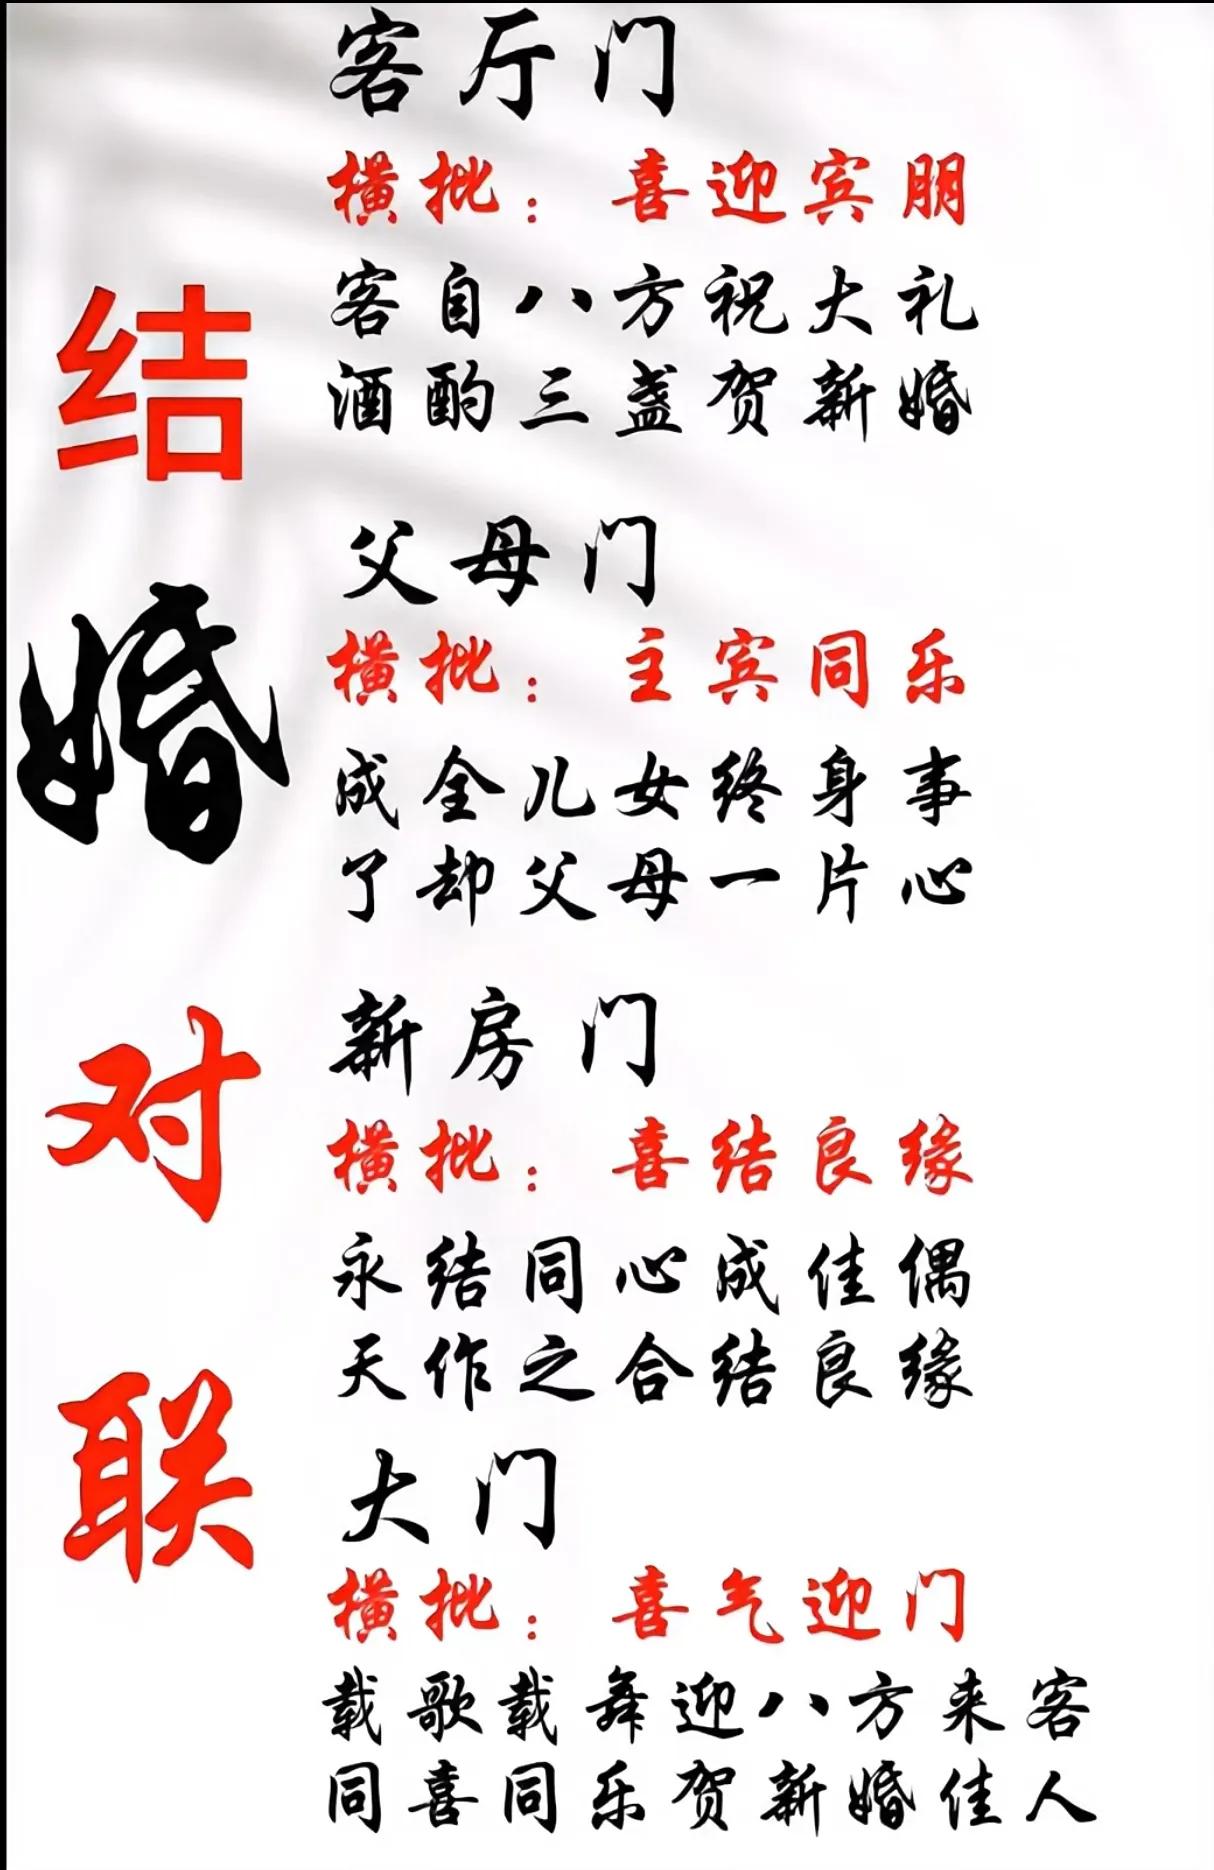 结婚对联
客厅门
横批：喜迎宾朋
客自八方祝大礼
酒酌三盏贺新婚
父母门
横批：主宾同乐
成全儿女终身事
了却父母一片心
新房门
横批：喜结良缘
永结同心成佳偶
天作之合结良缘
大门
横批：喜气迎门
载歌载舞迎八方来客
同喜同乐贺新婚佳人